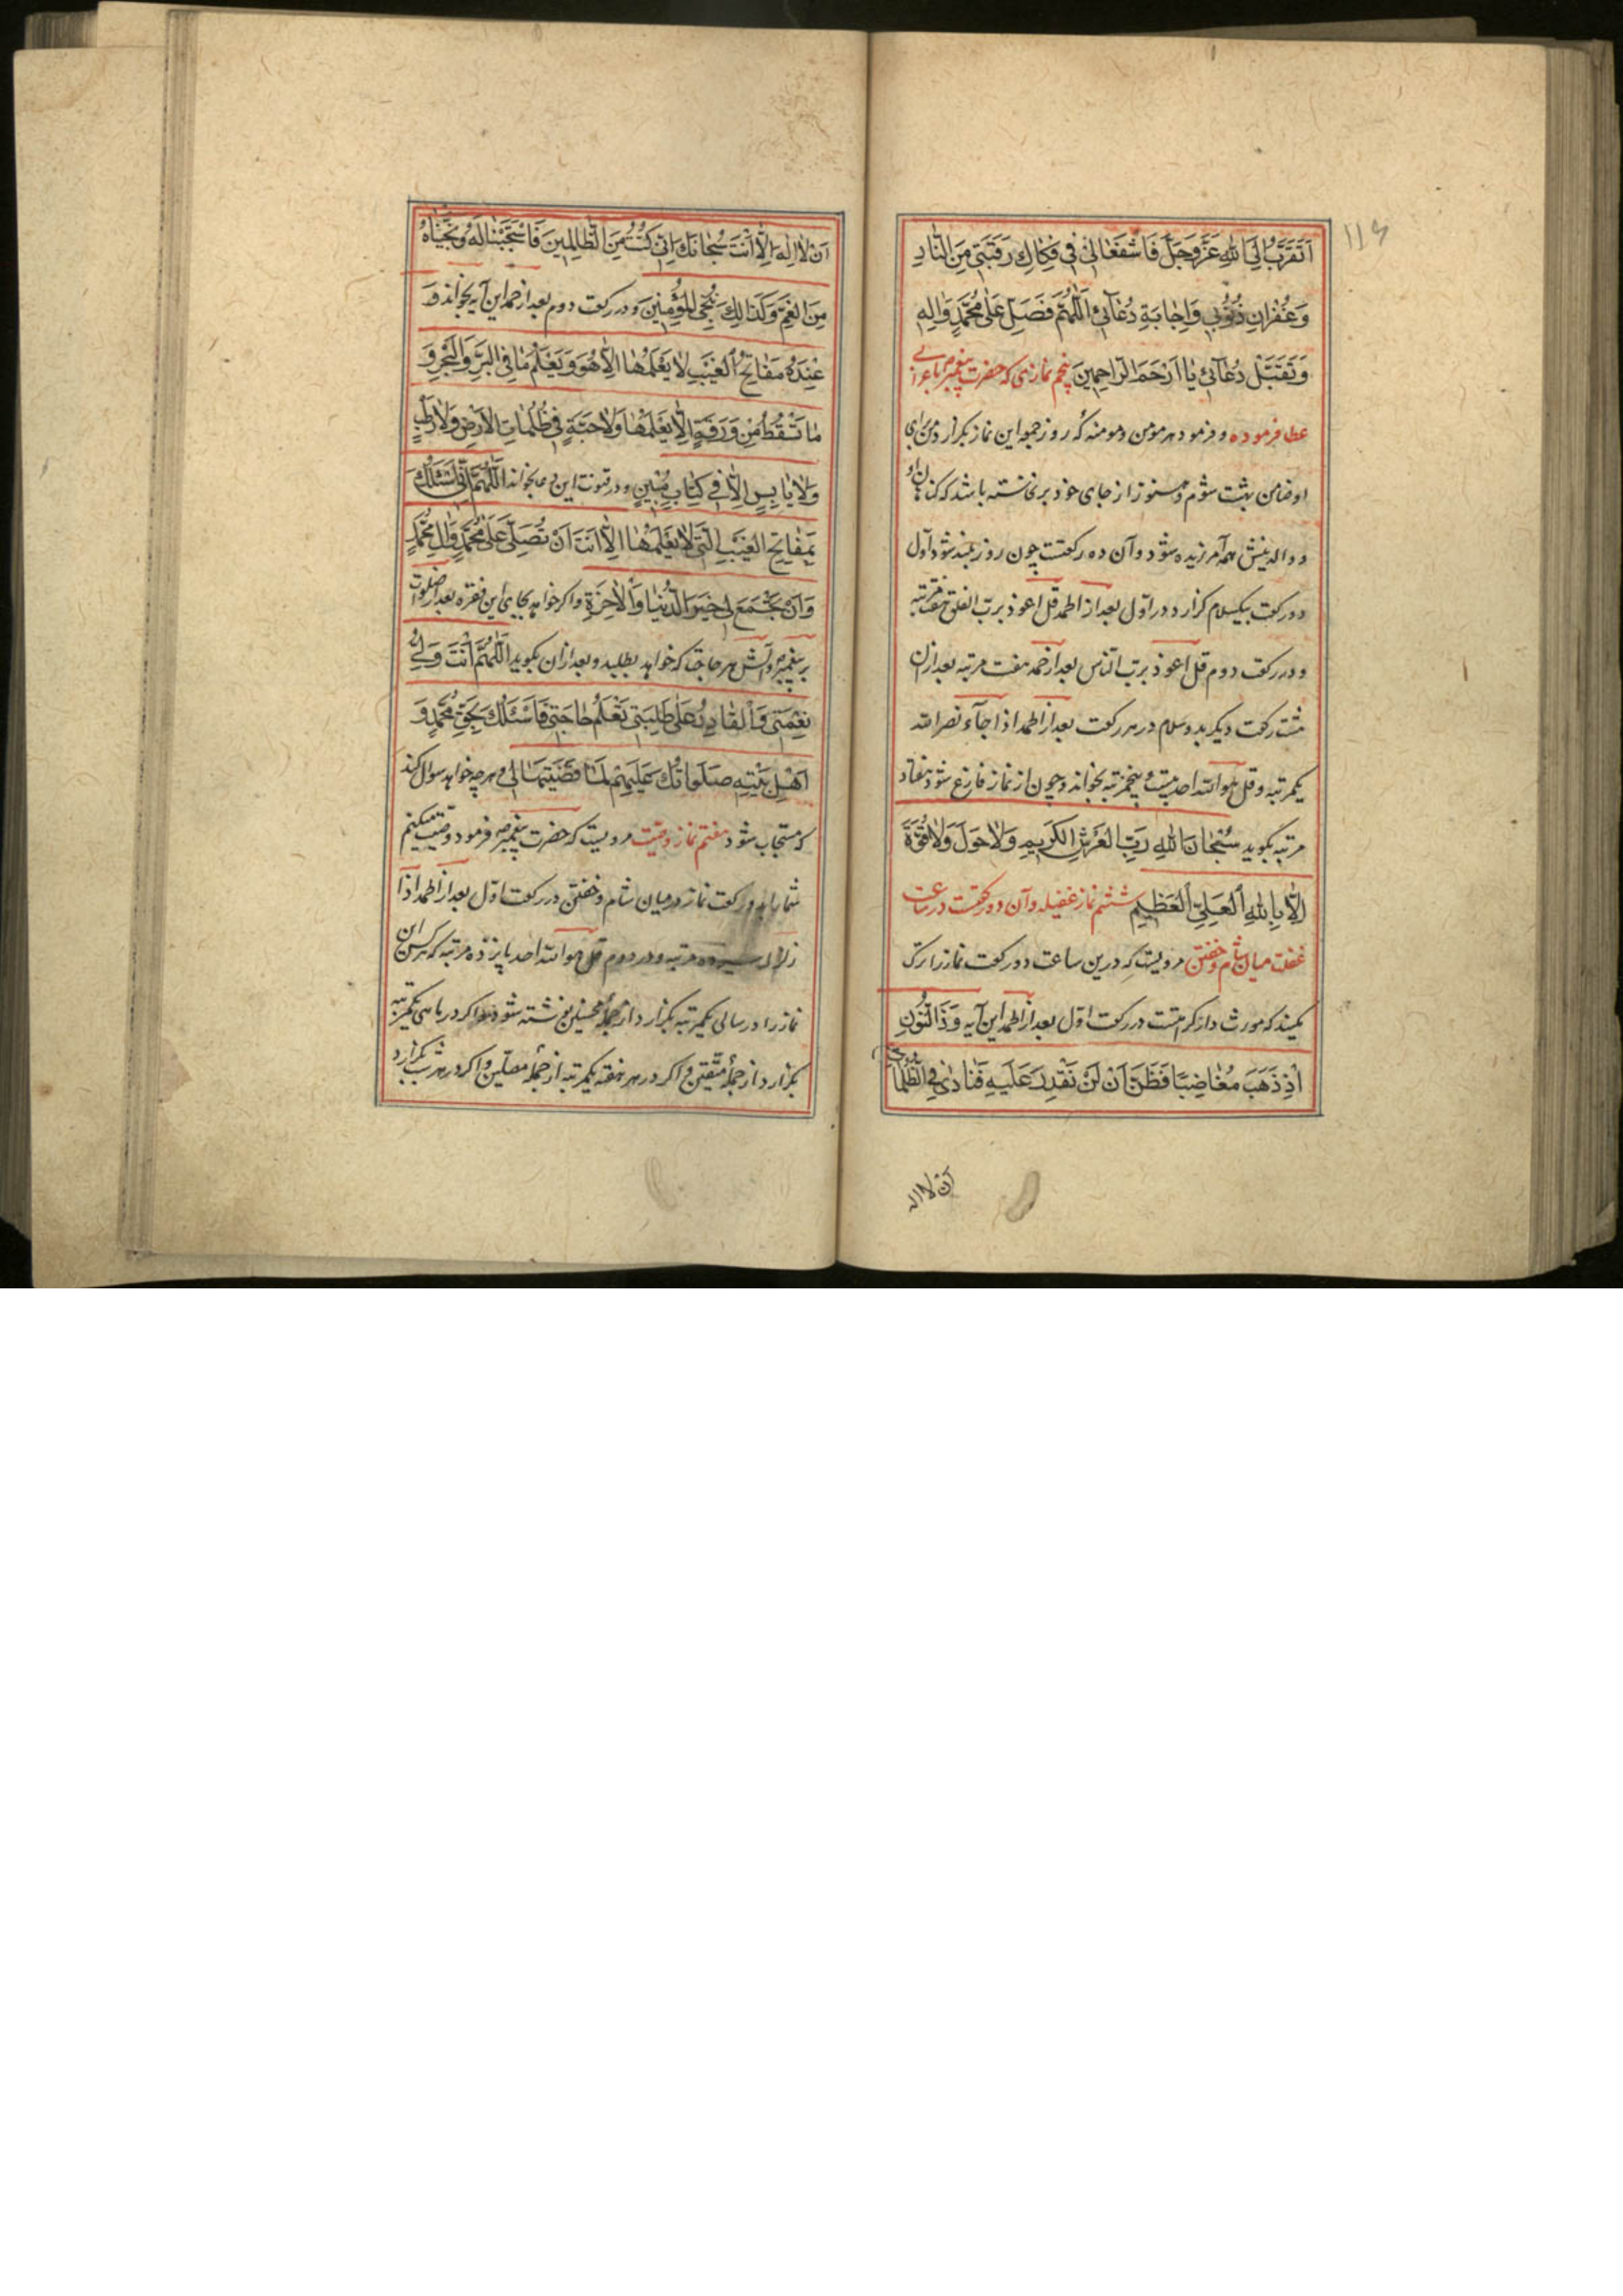 ۱۱۶
اَتَقَرَّبُ اِلَی اللهِ عَزَّ وَجَلَّ فَاشْفَعَا لِی فِی فِکَاكِ رَقَبَتِی مِنَ النَّارِ
وَغُفْرَانِ ذُنُوبِی وَاِجَابَةِ دُعَائِی اَللّٰهُمَّ فَصَلِّ عَلٰی مُحَمَّدٍ وَاٰلِهِ
وَتَقَبَّلْ دُعَائِی یَا اَرْحَمَ الرَّاحِمِینَ پنجم نمازی که حضرت پیغمبر ص باعرابی
عطا فرموده و فرمود هر مومن و مومنه که روز جمعه این نماز بکزارد من برای
او ضامن بهشت شوم و هنوز از جای خود برنخاسته باشد که کناهان او
و والدینش همه آمرزیده شود و آن ده رکعتست چون روز بلند شود اول
دو رکعت بیکسلام کزارد در اول بعد از الحمد قل اعوذ برب الفلق هفت مرتبه
و در رکعت دوم قل اعوذ برب الناس بعد از حمد هفت مرتبه بعد ازان
هشت رکعت دیکر بدو سلام در هر رکعت بعد از الحمد اذا جآء نصر الله
یکمرتبه و قل هو الله احد بیست و پنجمرتبه بخواند و چون از نماز فارغ شود هفتاد
مرتبه بکوید سُبْحَانَ اللهِ رَبِّ الْعَرْشِ الْکَرِیمِ وَلَا حَوْلَ وَلَا قُوَّةَ
اِلَّا بِاللهِ الْعَلِیِّ الْعَظِیمِ ششم نماز غفیله و آن دو رکعتست در ساعت
غفلت میان شام و خفتن مرویست که درین ساعت دو رکعت نماز را ترک
نکنید که مورث دار کرامتست در رکعت اول بعد از الحمد این آیه وَذَا النُّونِ
اِذْ ذَهَبَ مُغَاضِبًا فَظَنَّ اَنْ لَنْ نَقْدِرَ عَلَیْهِ فَنَادٰی فِی الظُّلُمَاتِ
ان لا اله
اَنْ لَا اِلٰهَ اِلَّا اَنْتَ سُبْحَانَكَ اِنِّی کُنْتُ مِنَ الظَّالِمِینَ فَاسْتَجَبْنَا لَهُ وَنَجَّیْنَاهُ
مِنَ الْغَمِّ وَکَذَالِكَ نُنْجِی الْمُؤْمِنِینَ و در رکعت دوم بعد از حمد این آیه بخواند وَ
عِنْدَهُ مَفَاتِحُ الْغَیْبِ لَا یَعْلَمُهَا اِلَّا هُوَ وَیَعْلَمُ مَا فِی الْبَرِّ وَالْبَحْرِ وَ
مَا تَسْقُطُ مِنْ وَرَقَةٍ اِلَّا یَعْلَمُهَا وَلَا حَبَّةٍ فِی ظُلُمَاتِ الْاَرْضِ وَلَا رَطْبٍ
وَلَا یَابِسٍ اِلَّا فِی کِتَابٍ مُبِینٍ و در قنوت این دعا بخواند اَللّٰهُمَّ اِنِّی اَسْئَلُكَ
بِمَفَاتِحِ الْغَیْبِ الَّتِی لَا یَعْلَمُهَا اِلَّا اَنْتَ اَنْ تُصَلِّیَ عَلٰی مُحَمَّدٍ وَاٰلِ مُحَمَّدٍ
وَاَنْ تَجْمَعَ لِی خَیْرَ الدُّنْیَا وَالْاٰخِرَةِ و اکر خواهد بجای این فقره بعد از صلوات
بر پیغمبر و آلش هر حاجت که خواهد بطلبد و بعد ازان بکوید اَللّٰهُمَّ اَنْتَ وَلِیُّ
نِعْمَتِی وَالْقَادِرُ عَلٰی طَلِبَتِی تَعْلَمُ حَاجَتِی فَاَسْئَلُكَ بِحَقِّ مُحَمَّدٍ وَ
اَهْلِ بَیْتِهِ صَلَوَاتُكَ عَلَیْهِمْ لَمَّا قَضَیْتَهَا لِی و هر چه خواهد سوال کند
که مستجاب شود هفتم نماز وصیت مرویست که حضرت پیغمبر ص فرمود وصیت میکنم
شما را بدو رکعت نماز در میان شام و خفتن در رکعت اول بعد از الحمد اذا
زلزلت سیزده مرتبه و در دوم قل هو الله احد پانزده مرتبه که هر کس این
نماز را در سالی یکمرتبه بکزارد از جمله محسنین نوشته شود و اکر در ماهی یکمرتبه
بکزارد از جمله متقین و اکر در هر هفته یکمرتبه از جمله مصلین و اکر در هر شب بکزارد